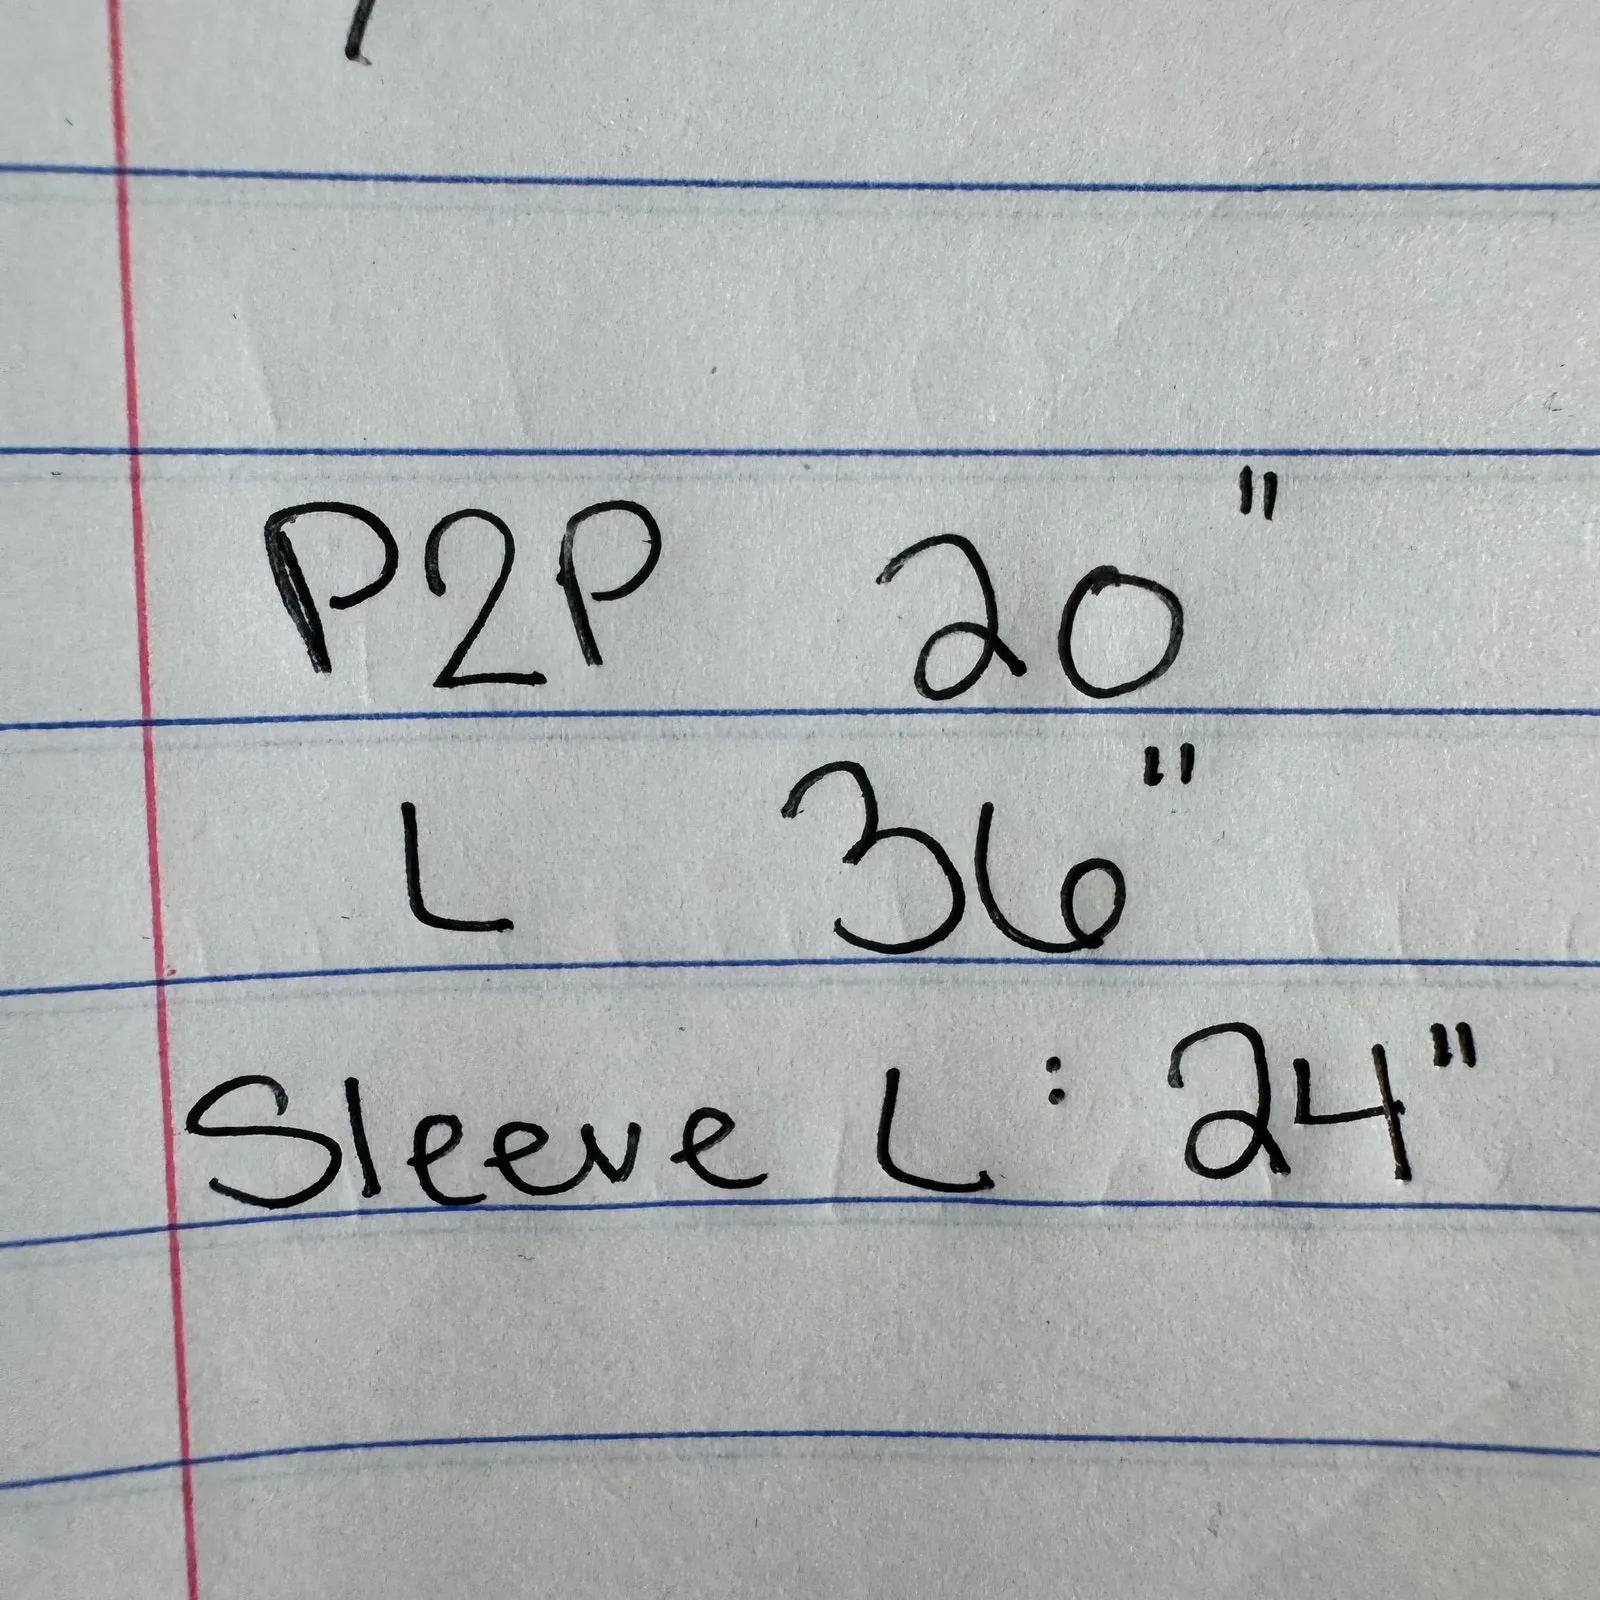 P2P 20"
L 36"
Sleeve L: 24"